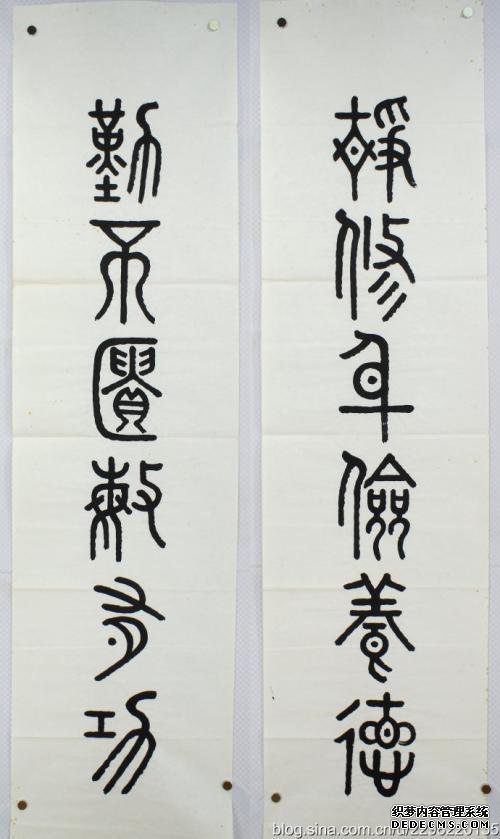 靜修身儉養德
勤不匱敏有功
织梦内容管理系统
DEDECMS.COM
blog.sina.com.cn